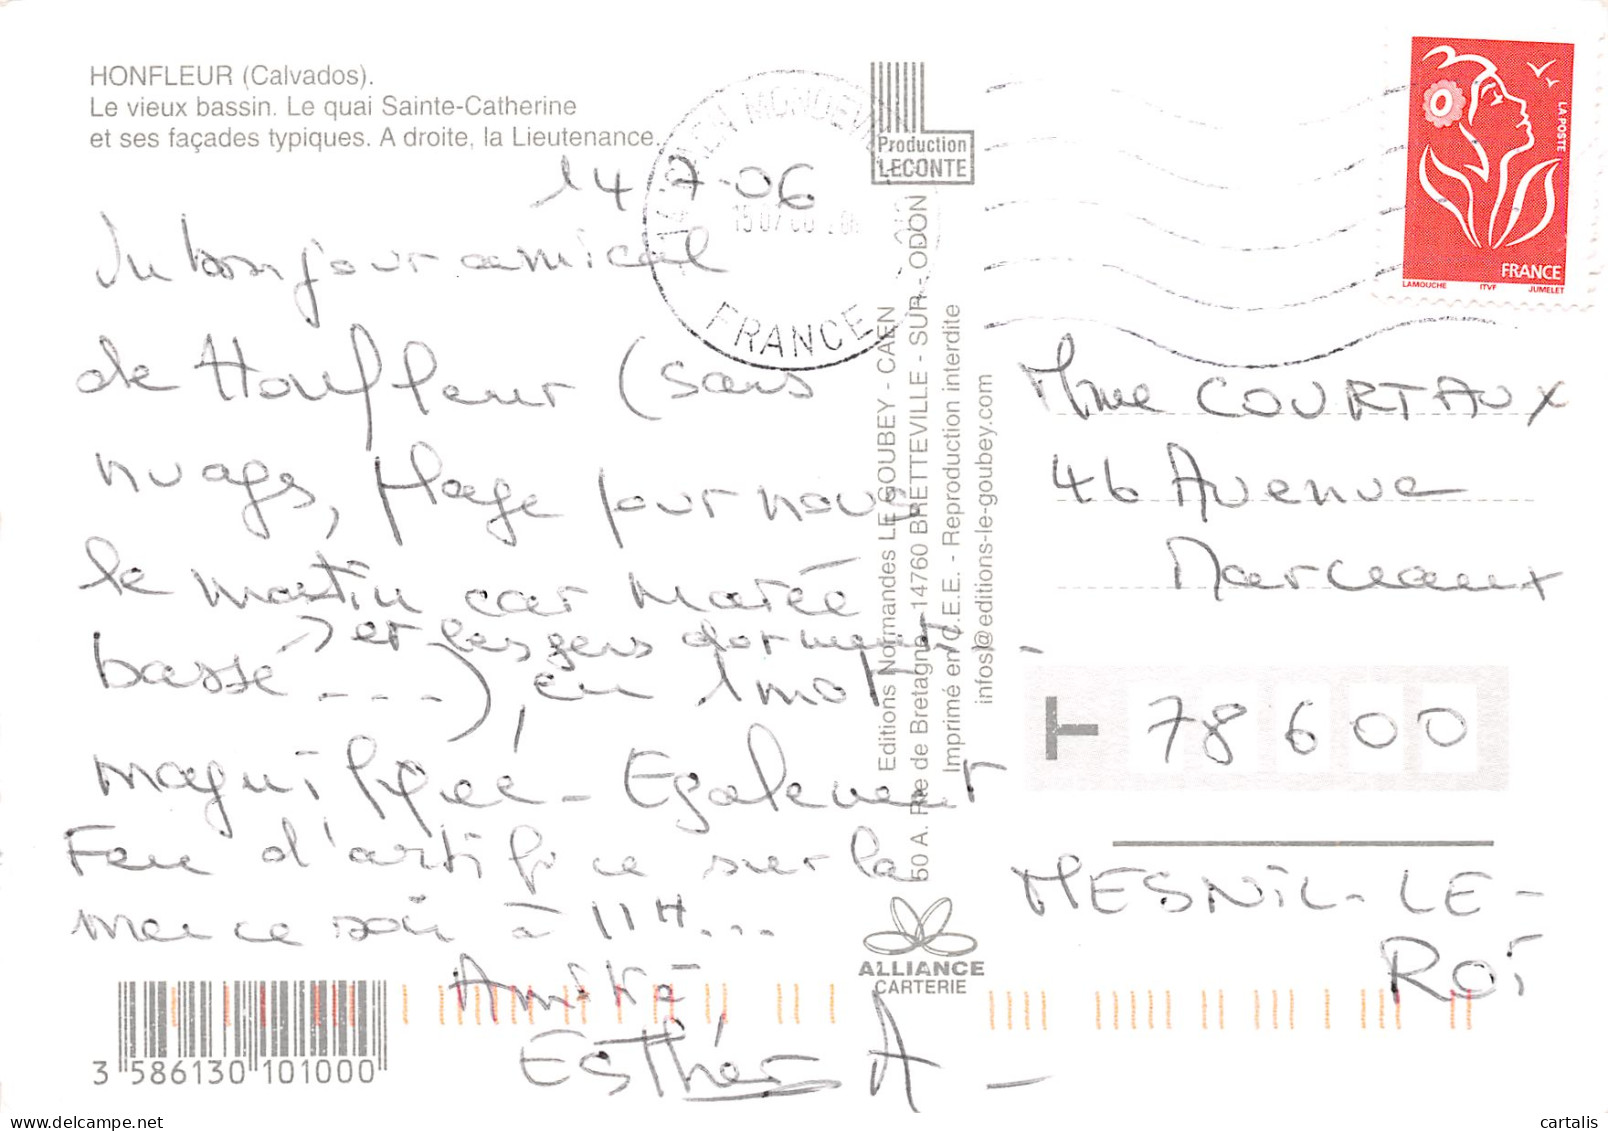 HONFLEUR (Calvados).
Le vieux bassin. Le quai Sainte-Catherine
et ses façades typiques. A droite, la Lieutenance.
14-7-06
Un bonjour amical
de Honfleur (sans
nuages, plage pour nous
le matin car marée
et les gens dorment
basse ....), en 1 mot
magnifique - Egalement
Feu d'artifice sur la
mer ce soir à 11H...
Amitié,
Esther A -
3 586130 101000
FRANCE
15 07 06
Production
LECONTE
Editions Normandes LE GOUBEY - CAEN
50 A. Rte de Bretagne 14760 BRETTEVILLE - SUR - ODON
Imprimé en C.E.E. - Reproduction interdite
infos@editions-le-goubey.com
ALLIANCE
CARTERIE
LA POSTE
FRANCE
LAMOUCHE ITVF JUMELET
Mme COURTAUX
46 Avenue
Marceaux
T 78600
MESNIL-LE-
ROI
cartalis